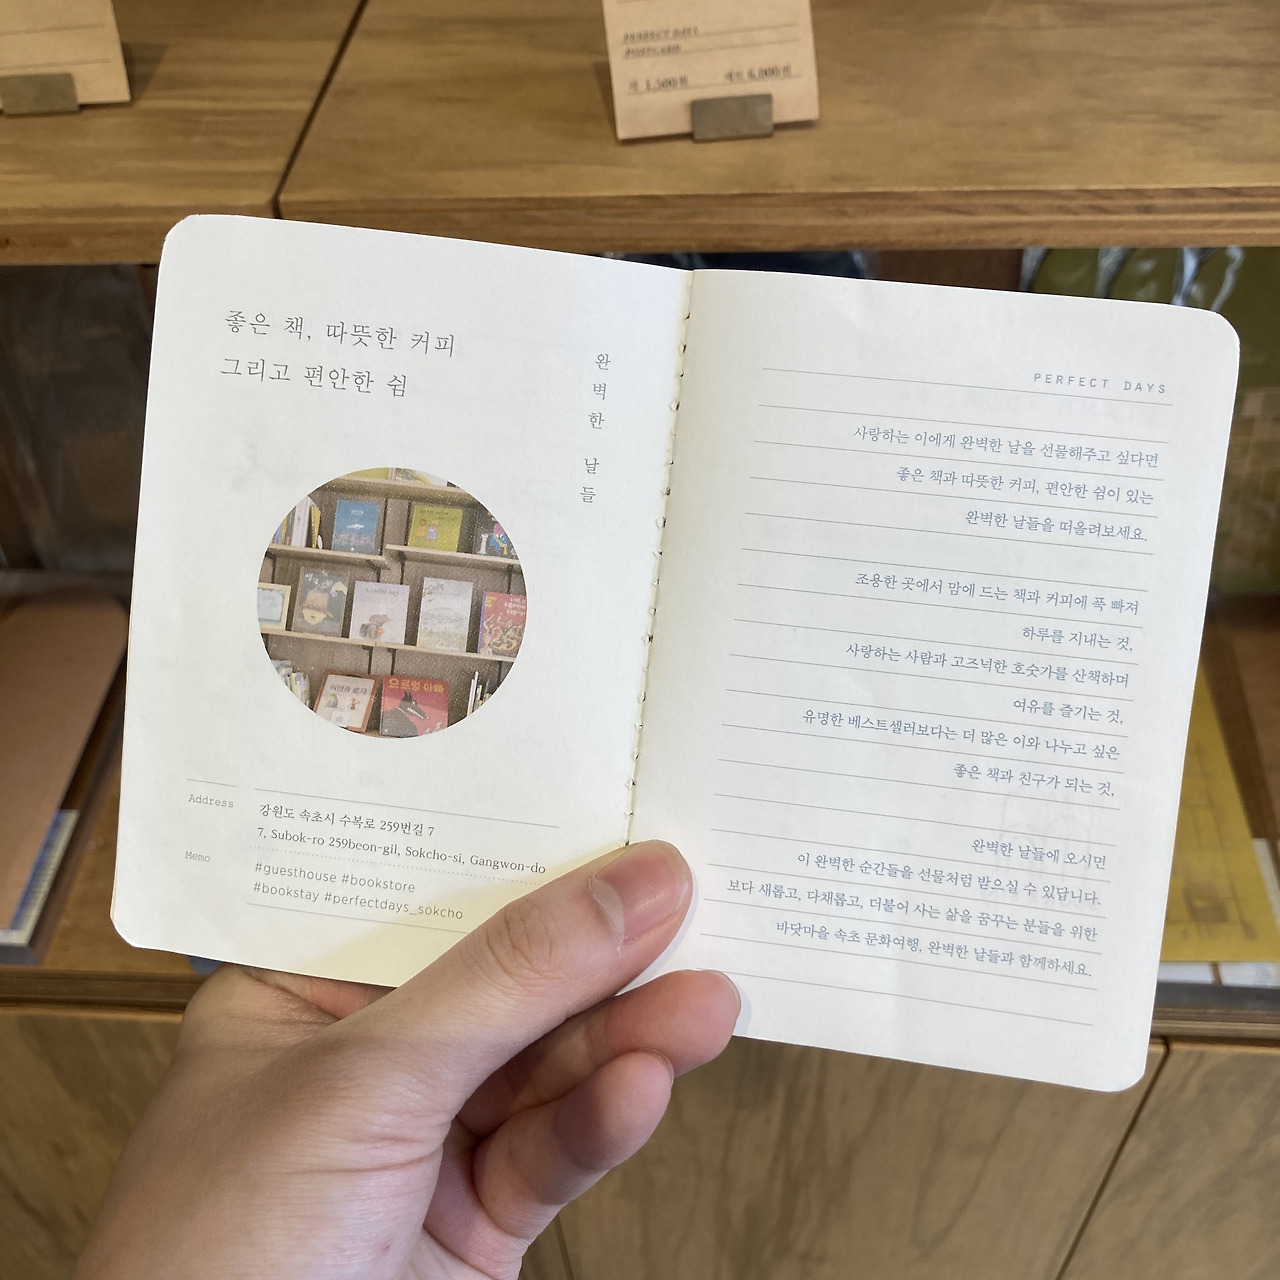 PERFECT DAYS
POSTCARD
좋은 책, 따뜻한 커피
그리고 편안한 쉼
완벽한 날들
으르렁 아빠
Address
강원도 속초시 수복로 259번길 7
7, Subok-ro 259beon-gil, Sokcho-si, Gangwon-do
Memo
#guesthouse #bookstore
#bookstay #perfectdays_sokcho
PERFECT DAYS
사랑하는 이에게 완벽한 날을 선물해주고 싶다면
좋은 책과 따뜻한 커피, 편안한 쉼이 있는
완벽한 날들을 떠올려보세요.
조용한 곳에서 맘에 드는 책과 커피에 푹 빠져
하루를 지내는 것,
사랑하는 사람과 고즈넉한 호숫가를 산책하며
여유를 즐기는 것,
유명한 베스트셀러보다는 더 많은 이와 나누고 싶은
좋은 책과 친구가 되는 것,
완벽한 날들에 오시면
이 완벽한 순간들을 선물처럼 받으실 수 있답니다.
보다 새롭고, 다채롭고, 더불어 사는 삶을 꿈꾸는 분들을 위한
바닷마을 속초 문화여행, 완벽한 날들과 함께하세요.